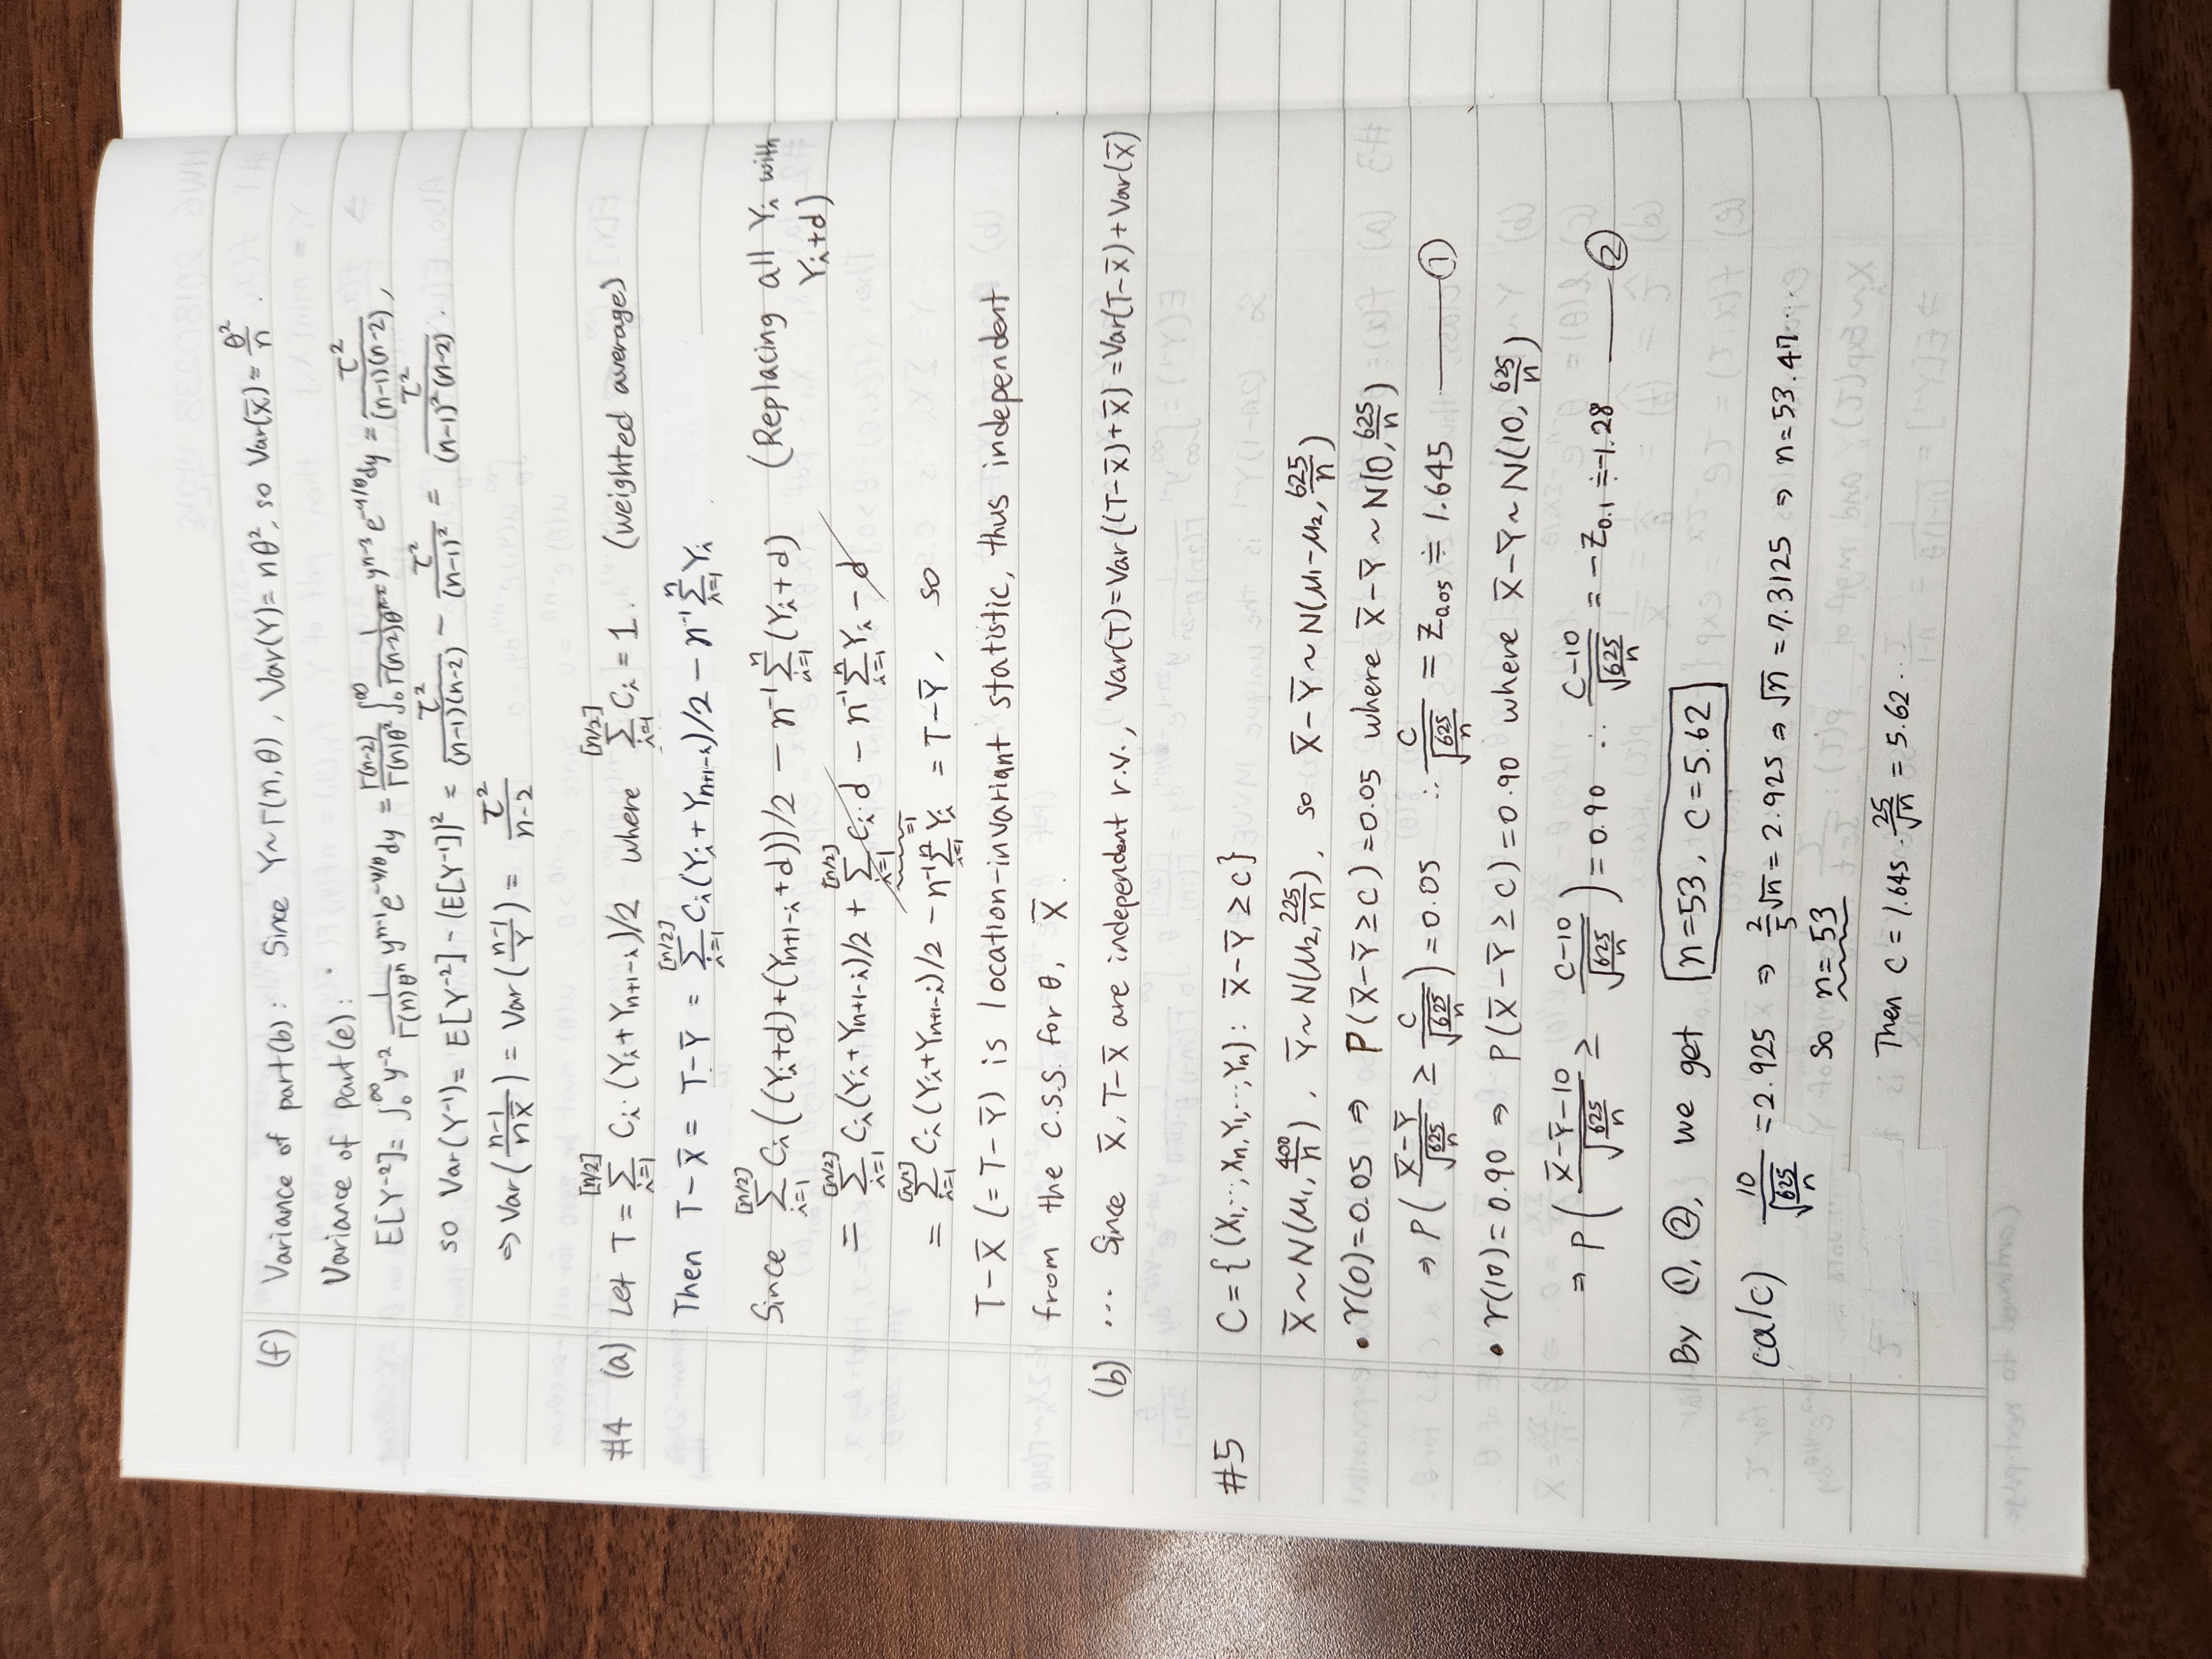 (f) Variance of part(b): Since Y~Γ(n,θ), Var(Y)=nθ², so Var(X̄)=θ²/n.
Variance of part(e):
E[Y⁻²]=∫₀^∞ y⁻² 1/(Γ(n)θⁿ) yⁿ⁻¹e^(-y/θ)dy = Γ(n-2)/(Γ(n)θ²) ∫₀^∞ 1/(Γ(n-2)θⁿ⁻²) yⁿ⁻³ e^(-y/θ)dy = τ²/((n-1)(n-2)),
so Var(Y⁻¹)=E[Y⁻²]-(E[Y⁻¹])² = τ²/((n-1)(n-2)) - τ²/(n-1)² = τ²/((n-1)²(n-2)).
⇒ Var((n-1)/(nX̄)) = Var((n-1)/Y) = τ²/(n-2)
#4 (a) Let T = Σ_{i=1}^{[n/2]} Cᵢ·(Yᵢ+Yₙ₊₁₋ᵢ)/2 where Σ_{i=1}^{[n/2]} Cᵢ = 1. (weighted average)
Then T-X̄ = T-Ȳ = Σ_{i=1}^{[n/2]} Cᵢ(Yᵢ+Yₙ₊₁₋ᵢ)/2 - n⁻¹Σ_{i=1}^{n} Yᵢ
Since Σ_{i=1}^{[n/2]} Cᵢ((Yᵢ+d)+(Yₙ₊₁₋ᵢ+d))/2 - n⁻¹Σ_{i=1}^{n}(Yᵢ+d) (Replacing all Yᵢ with Yᵢ+d)
= Σ_{i=1}^{[n/2]} Cᵢ(Yᵢ+Yₙ₊₁₋ᵢ)/2 + Σ_{i=1}^{[n/2]} Cᵢ·d - n⁻¹Σ_{i=1}^{n} Yᵢ - d
=1
= Σ_{i=1}^{[n/2]} Cᵢ(Yᵢ+Yₙ₊₁₋ᵢ)/2 - n⁻¹Σ_{i=1}^{n} Yᵢ = T-Ȳ, so
T-X̄ (=T-Ȳ) is location-invariant statistic, thus independent
from the c.s.s. for θ, X̄.
(b) ... Since X̄, T-X̄ are independent r.v., Var(T)=Var((T-X̄)+X̄)=Var(T-X̄)+Var(X̄)
#5 C={(X₁,...,Xₙ,Y₁,...,Yₙ): X̄-Ȳ≥c}
X̄~N(μ₁,400/n), Ȳ~N(μ₂,225/n), so X̄-Ȳ~N(μ₁-μ₂,625/n)
• r(0)=0.05 ⇒ P(X̄-Ȳ≥c)=0.05 where X̄-Ȳ~N(0,625/n)
⇒ P((X̄-Ȳ)/√(625/n) ≥ c/√(625/n))=0.05 ∴ c/√(625/n) = z₀.₀₅ ≒ 1.645 ——— ①
• r(10)=0.90 ⇒ P(X̄-Ȳ≥c)=0.90 where X̄-Ȳ~N(10,625/n)
⇒ P((X̄-Ȳ-10)/√(625/n) ≥ (c-10)/√(625/n))=0.90 ∴ (c-10)/√(625/n) = -z₀.₁ ≒ -1.28 ——— ②
By ①, ②, we get n=53, c=5.62
calc) 10/√(625/n) = 2.925 ⇒ 2/5 √n = 2.925 ⇒ √n = 7.3125 ⇒ n=53.47...
So n=53
Then c=1.645·25/√n = 5.62...